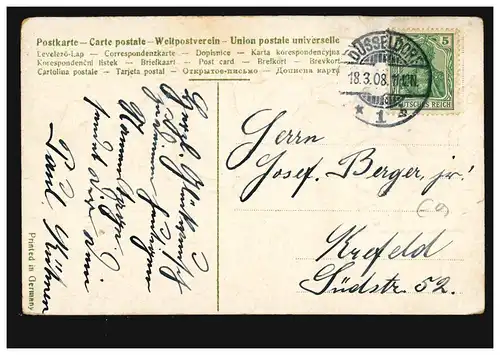 Postkarte – Carte postale – Weltpostverein – Union postale universelle
Levelező-Lap – Correspondenzkarte – Dopisnice – Karta korespondencyjna
Korespondenční listek – Briefkaart – Post card – Brefkort – Brevkort
Cartolina postale – Tarjeta postal – Открытое-письмо – Дописна карта
DÜSSELDORF
18.3.08.
* 1
5
DEUTSCHES REICH
Herrn
Josef Berger jr!
Krefeld
Südstr. 52.
Herzl. Glückwunsch
zu
Namenstage
sendet Dir
Paul
Printed in Germany